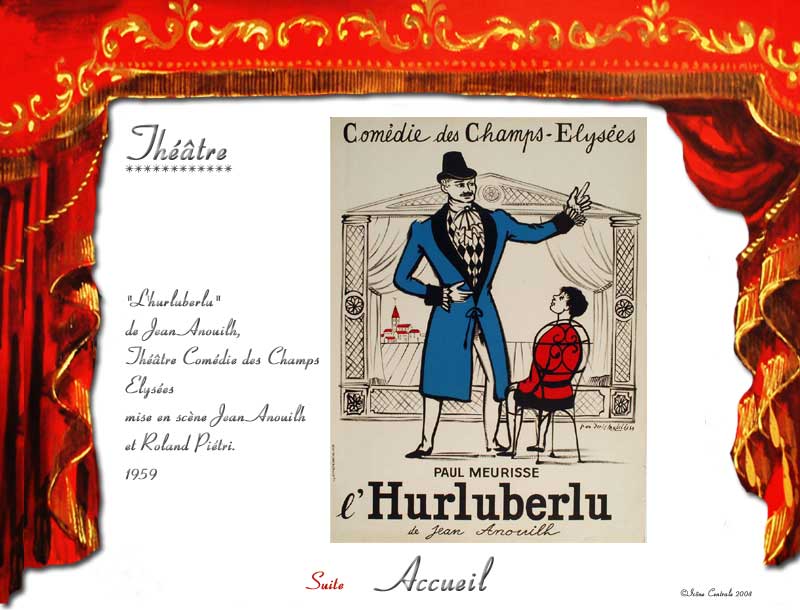 Théâtre
************
"L'hurluberlu"
de Jean Anouilh,
Théâtre Comédie des Champs
Elysées
mise en scène Jean Anouilh
et Roland Piétri.
1959
Comédie des Champs-Elysées
PAUL MEURISSE
l'Hurluberlu
de Jean Anouilh
Suite
Accueil
2008